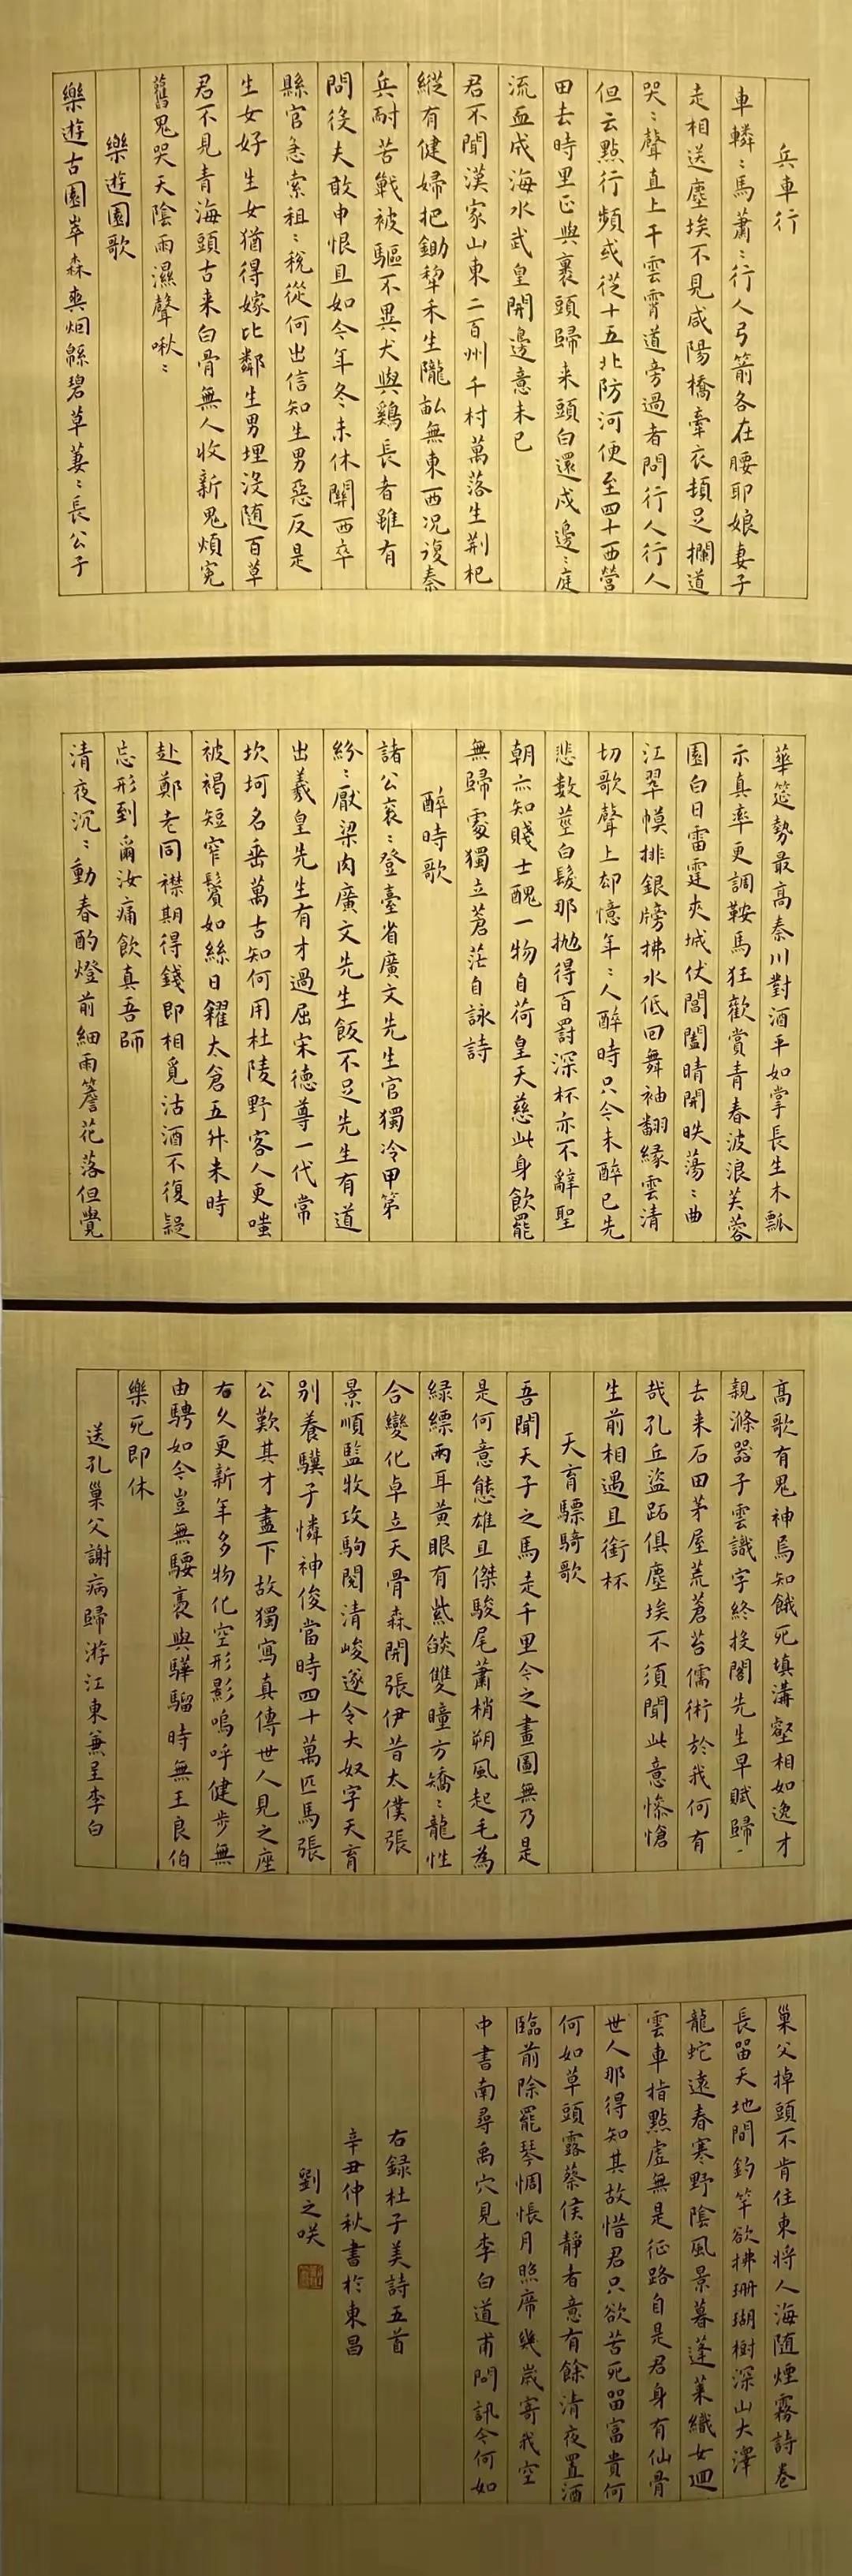 兵車行
車轔〻馬蕭〻行人弓箭各在腰耶娘妻子
走相送塵埃不見咸陽橋牽衣頓足攔道
哭〻聲直上干雲霄道旁過者問行人行人
但云點行頻或從十五北防河便至四十西營
田去時里正與裹頭歸来頭白還戍邊〻庭
流血成海水武皇開邊意未已
君不聞漢家山東二百州千村萬落生荆杞
縱有健婦把鋤犂禾生隴畝無東西况復秦
兵耐苦戰被驅不異犬與鷄長者雖有
問役夫敢申恨且如今年冬未休關西卒
縣官急索租〻税從何出信知生男惡反是
生女好生女猶得嫁比鄰生男埋沒随百草
君不見青海頭古来白骨無人收新鬼煩寃
舊鬼哭天陰雨濕聲啾〻
樂遊園歌
樂遊古園崒森爽烟緜碧草萋〻長公子
華筵勢最高秦川對酒平如掌長生木瓢
示真率更調鞍馬狂歡賞青春波浪芙蓉
園白日雷霆夾城仗閶闔晴開昳蕩〻曲
江翠幙排銀牓拂水低回舞袖翻緣雲清
切歌聲上却憶年〻人醉時只今未醉已先
悲数莖白髮那抛得百罰深杯亦不辭聖
朝亦知賤士醜一物自荷皇天慈此身飲罷
無歸處獨立蒼茫自詠詩
醉時歌
諸公衮〻登臺省廣文先生官獨冷甲第
紛〻厭梁肉廣文先生飯不足先生有道
出羲皇先生有才過屈宋德尊一代常
坎坷名垂萬古知何用杜陵野客人更嗤
被褐短窄鬢如絲日糴太倉五升米時
赴鄭老同襟期得錢即相覓沽酒不復疑
忘形到爾汝痛飲真吾師
清夜沉〻動春酌燈前細雨簷花落但覺
高歌有鬼神焉知餓死填溝壑相如逸才
親滌器子雲識字終投閣先生早賦歸
去来石田茅屋荒蒼苔儒術於我何有
哉孔丘盜跖俱塵埃不須聞此意慘愴
生前相遇且銜杯
天育驃騎歌
吾聞天子之馬走千里今之畫圖無乃是
是何意態雄且傑駿尾蕭梢朔風起毛為
緑縹兩耳黄眼有紫燄雙瞳方矯〻龍性
合變化卓立天骨森開張伊昔太僕張
景順監牧攻駒閱清峻遂令大奴字天育
别養驥子憐神俊當時四十萬匹馬張
公歎其才盡下故獨寫真傳世人見之座
右久更新年多物化空形影嗚呼健步無
由騁如今豈無騕褭與驊騮時無王良伯
樂死即休
送孔巢父謝病歸游江東兼呈李白
巢父掉頭不肯住東将入海随煙霧詩卷
長畱天地間釣竿欲拂珊瑚樹深山大澤
龍蛇遠春寒野陰風景暮蓬萊織女迴
雲車指點虛無是征路自是君身有仙骨
世人那得知其故惜君只欲苦死畱富貴何
何如草頭露蔡侯靜者意有餘清夜置酒
臨前除罷琴惆悵月照席幾歲寄我空
中書南尋禹穴見李白道甫問訊今何如
右録杜子美詩五首
辛丑仲秋書於東昌
劉之咲